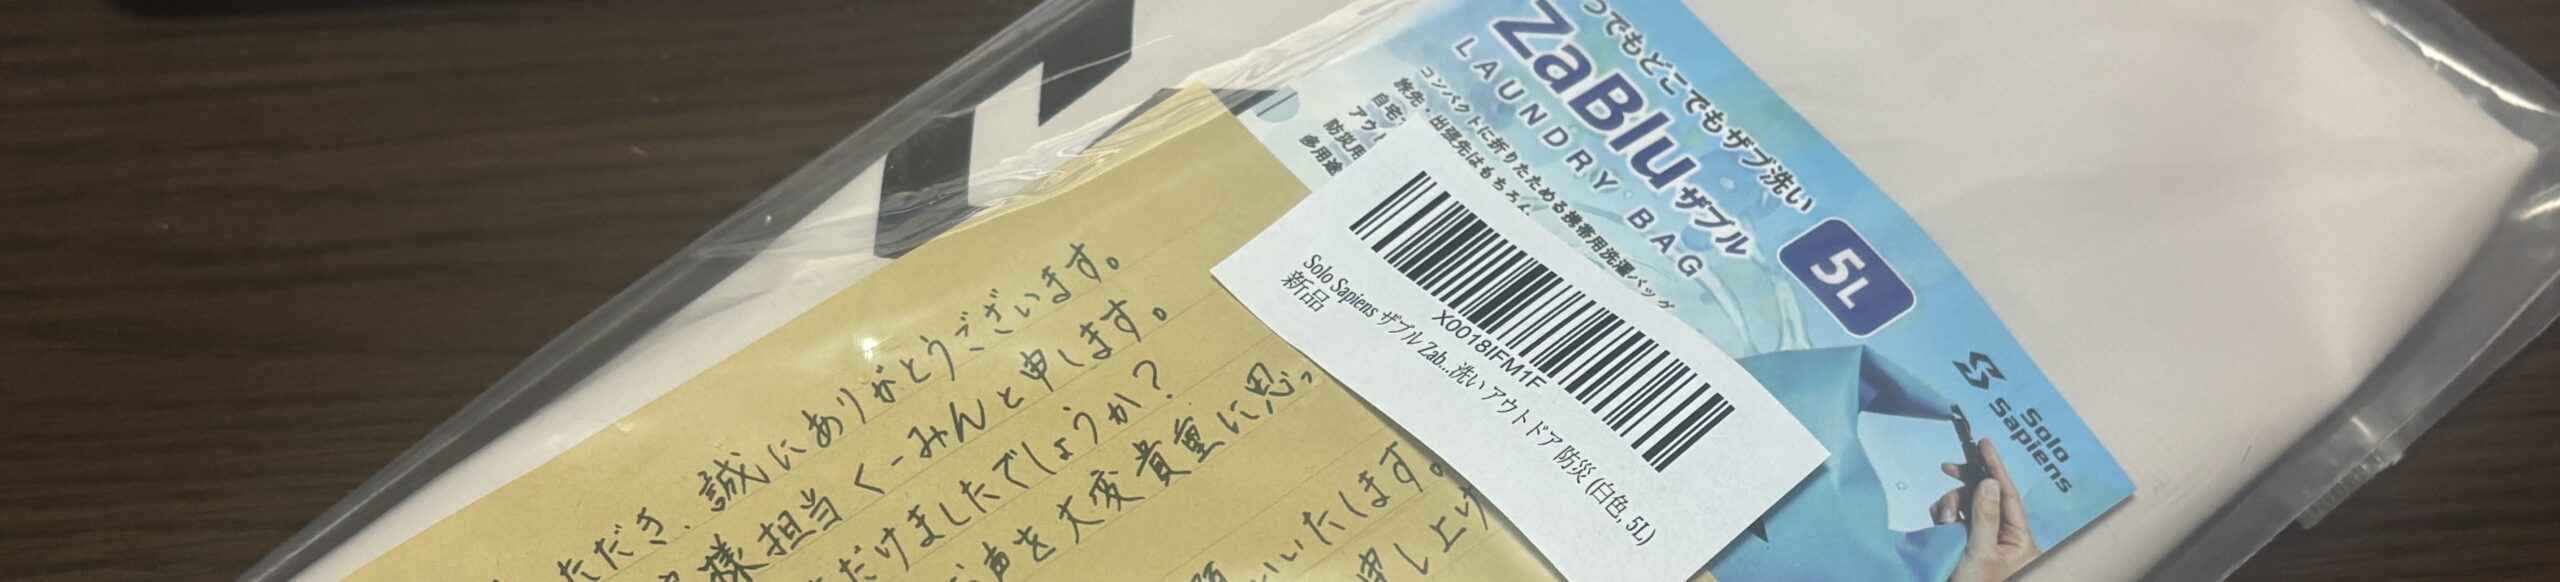 つでもどこでもザブ洗い
ZaBlu ザブル
LAUNDRY BAG
5L
コンパクトに折りたためる携帯用洗濯バッグ
旅先・出張先はもちろん
自宅
アウト
防災用
多用途
Solo
Sapiens
X0018IFM1F
Solo Sapiens ザブル Zab...洗い アウトドア 防災 (白色, 5L)
新品
ただき、誠にありがとうございます。
様担当くーみんと申します。
だけましたでしょうか?
声を大変貴重に思っ
いいたします。
申し上げ